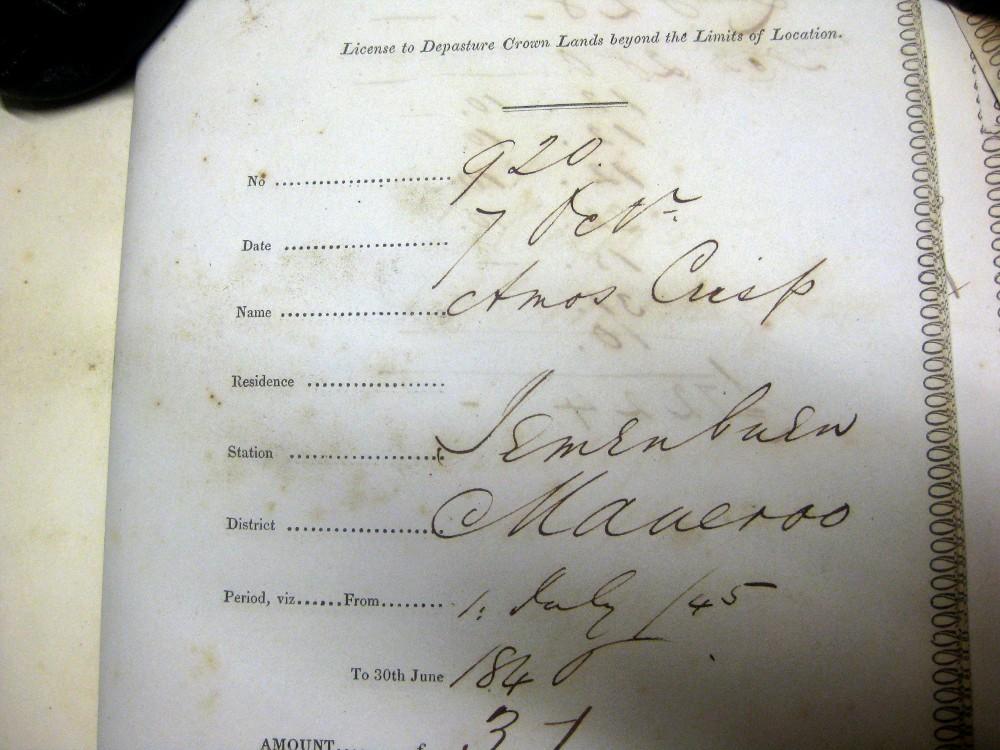 License to Depasture Crown Lands beyond the Limits of Location.
No 920.
Date 7 Octr
Name Amos Crisp
Residence
Station Jemenbuen
District Maneroo
Period, viz......From........ 1. July /45
To 30th June 184
AMOUNT..... £